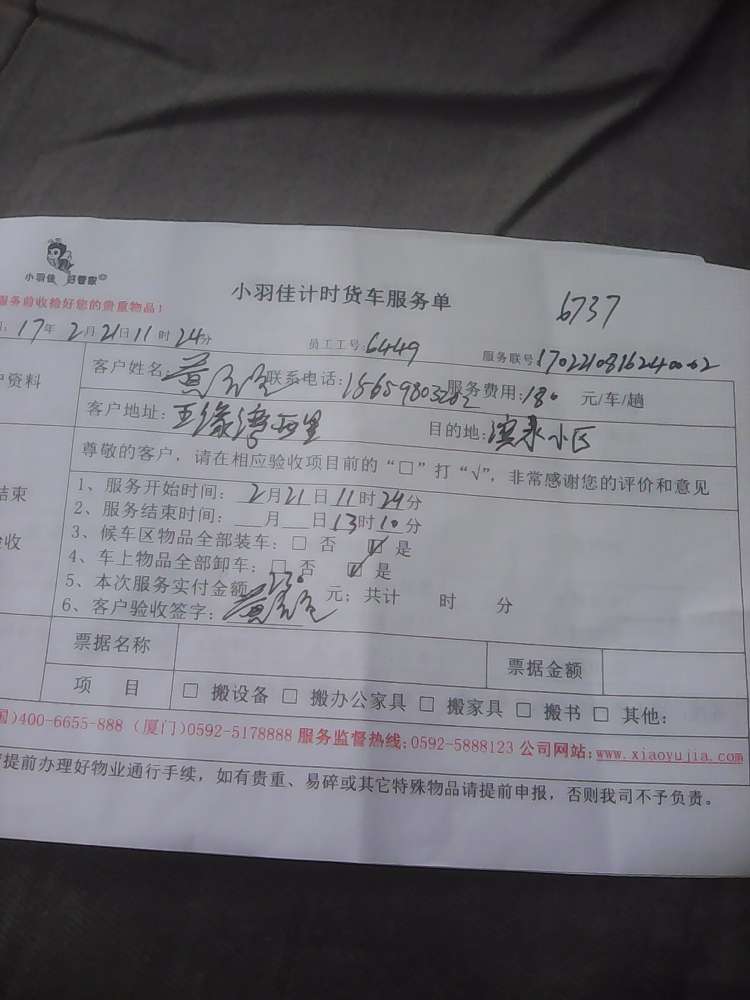 小羽佳 好管家
小羽佳计时货车服务单
6737
服务前收捡好您的贵重物品！
17年 2月21日11时24分
员工工号:6449
服务联号
户资料
客户姓名:黄 联系电话: 服务费用:180 元/车/趟
客户地址: 西里 目的地: 小区
尊敬的客户，请在相应验收项目前的“□”打“√”，非常感谢您的评价和意见
结束
1、服务开始时间: 2月21日11时24分
2、服务结束时间: 月 日13时10分
收
3、候车区物品全部装车: □ 否 ☑ 是
4、车上物品全部卸车: □ 否 ☑ 是
5、本次服务实付金额 元; 共计 时 分
6、客户验收签字: 黄
票据名称
票据金额
项 目
□ 搬设备 □ 搬办公家具 □ 搬家具 □ 搬书 □ 其他:
国)400-6655-888 (厦门)0592-5178888 服务监督热线:0592-5888123 公司网站:www.xiaoyujia.com
提前办理好物业通行手续，如有贵重、易碎或其它特殊物品请提前申报，否则我司不予负责。